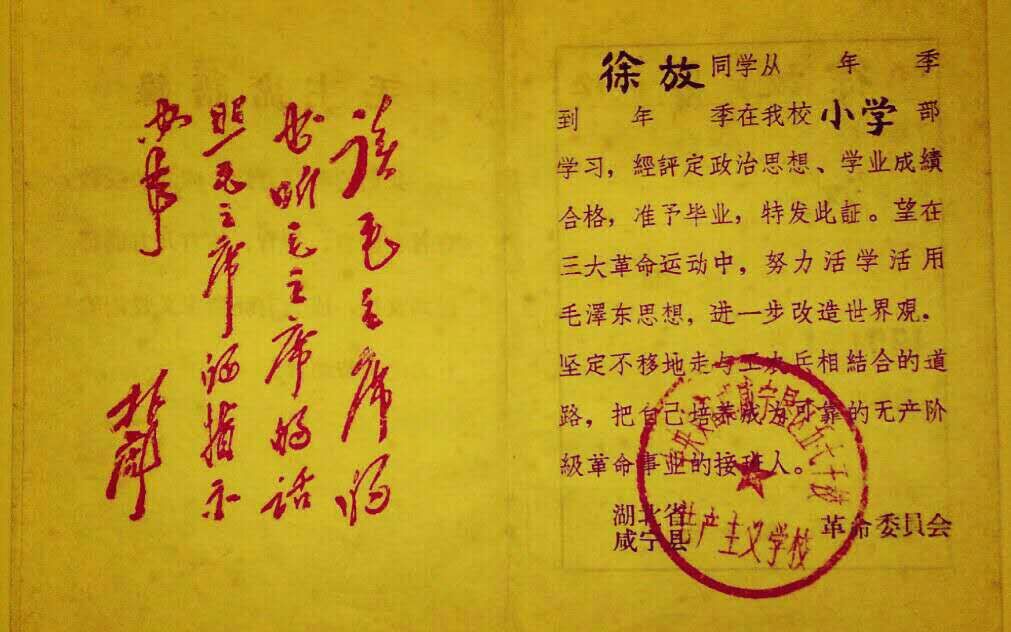 读毛主席的
书听毛主席的话
照毛主席的指示
办事
林彪
徐放同学从 年 季
到 年 季在我校小学部
学习，經評定政治思想、学业成績
合格，准予毕业，特发此証。望在
三大革命运动中，努力活学活用
毛澤东思想，进一步改造世界观。
坚定不移地走与工农兵相結合的道
路，把自己培养成为可靠的无产阶
級革命事业的接班人。
湖北省
咸宁县
共产主义学校
革命委員会